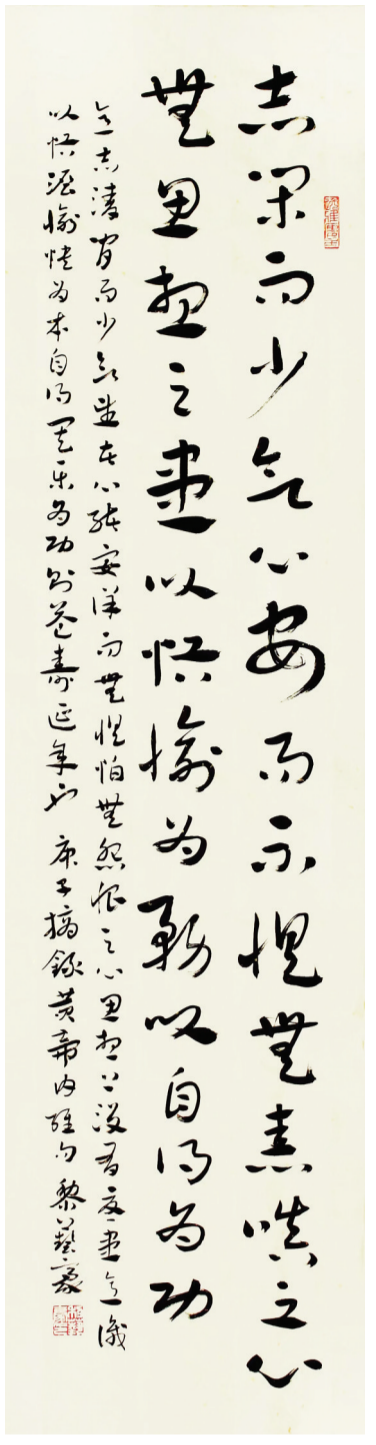 志闲而少欲心安而不惧无恚嗔之心
无思想之患以恬愉为务以自得为功
意志凄闲而少欲望其心能安详而无惧怕无怨恨之心思想上没有忧患意识
以恬愉快为本自得其乐为功则益寿延年也 庚子摘录黄帝内经句 黎艺豪